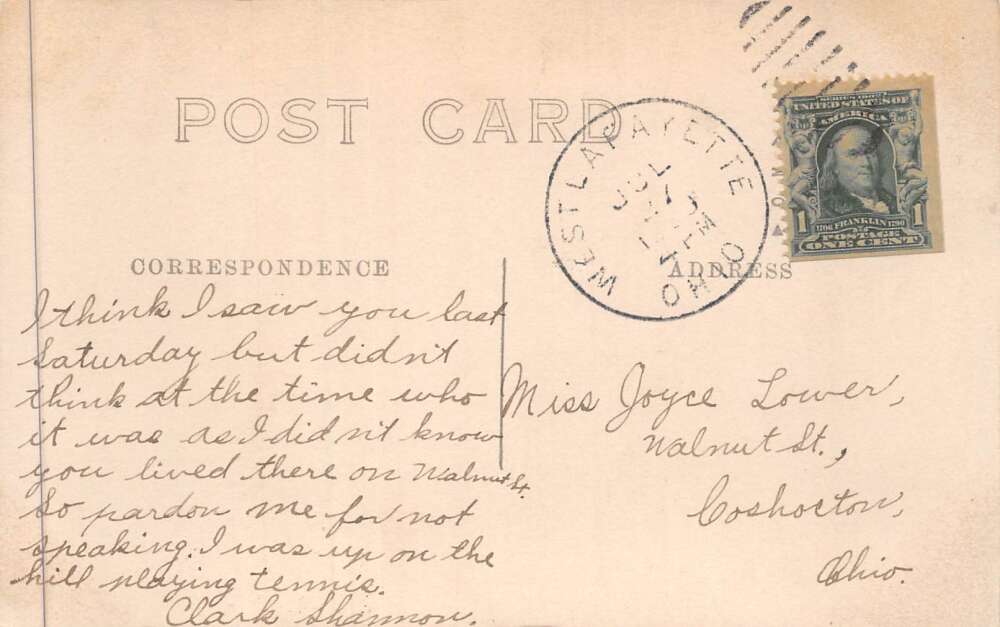 POST CARD
WEST LAFAYETTE OHIO
JUL
SERIES 1902
UNITED STATES OF
AMERICA
1 1
1706 FRANKLIN 1790
POSTAGE
ONE CENT
CORRESPONDENCE
ADDRESS
I think I saw you last
Saturday but didn't
think at the time who
it was as I didn't know
you lived there on Walnut St.
So pardon me for not
speaking. I was up on the
hill playing tennis.
Clark Shannon.
Miss Joyce Lower,
Walnut St.,
Coshocton,
Ohio.